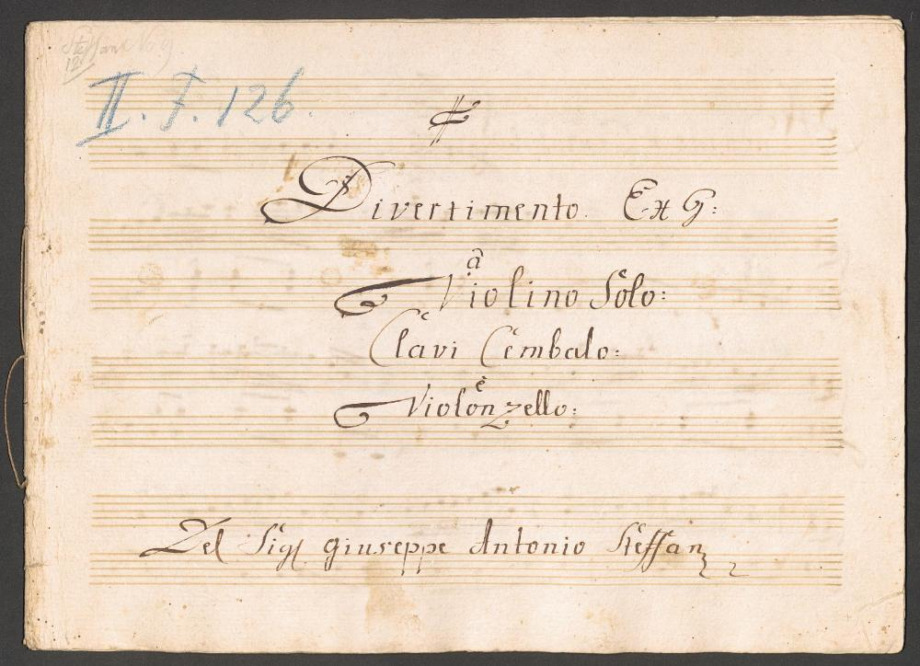 Steffan No 9.
II. F. 126.
Divertimento. Ex G:
â
Violino Solo:
Clavi Cembalo:
è
Violonzello:
Del Sigl. Giuseppe Antonio Steffan